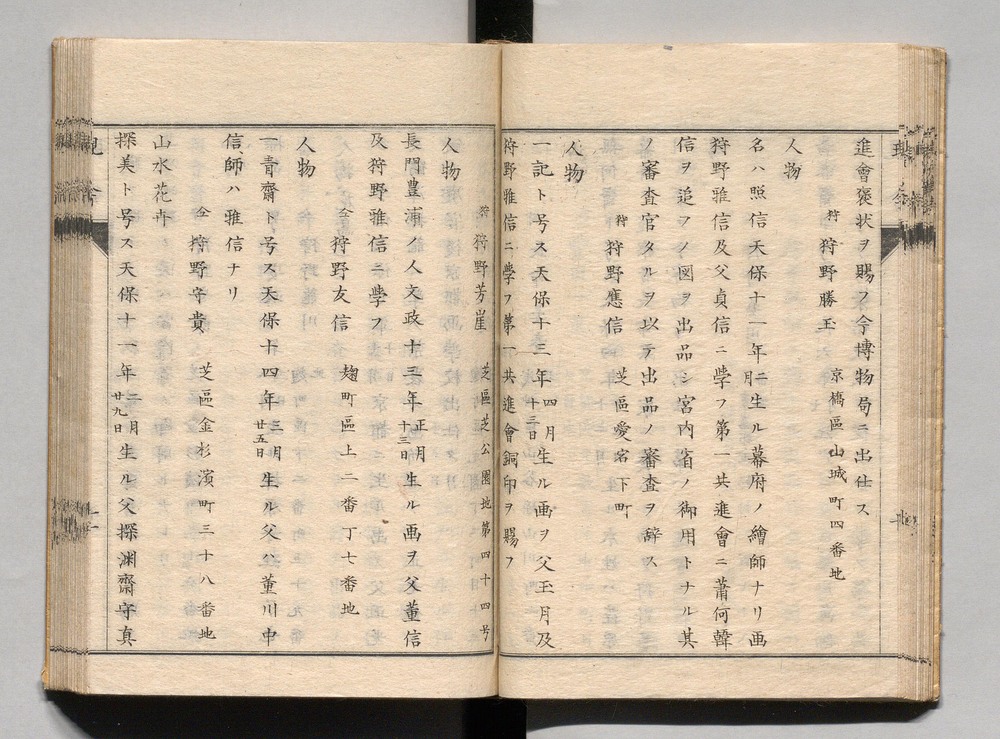 進會褒状ヲ賜フ今博物局ニ出仕ス
狩 狩野勝玉 京橋區山城町四番地
人物
名ハ照信天保十一年二月生ル幕府ノ繪師ナリ画
狩野雅信及父貞信ニ學フ第一共進會ニ蕭何韓
信ヲ追フノ圖ヲ出品シ宮内省ノ御用トナル其
ノ審査官タルヲ以テ出品ノ審査ヲ辞ス
狩 狩野應信 芝區愛宕下町
人物
一記ト号ス天保十三年四月十三日生ル画ヲ父玉月及
狩野雅信ニ學フ第一共進會銅印ヲ賜フ
狩 狩野芳崖 芝區芝公園地第四十四号
人物
長門豊浦ノ人文政十三年正月十三日生ル画ヲ父董信
及狩野雅信ニ學フ
仝 狩野友信 麹町區上二番丁七番地
人物
一青齋ト号ス天保十四年三月廿五日生ル父ハ董川中
信、師ハ雅信ナリ
仝 狩野守貴 芝區金杉濱町三十八番地
山水花卉
探美ト号ス天保十一年二月廿九日生ル父探渊齋守真